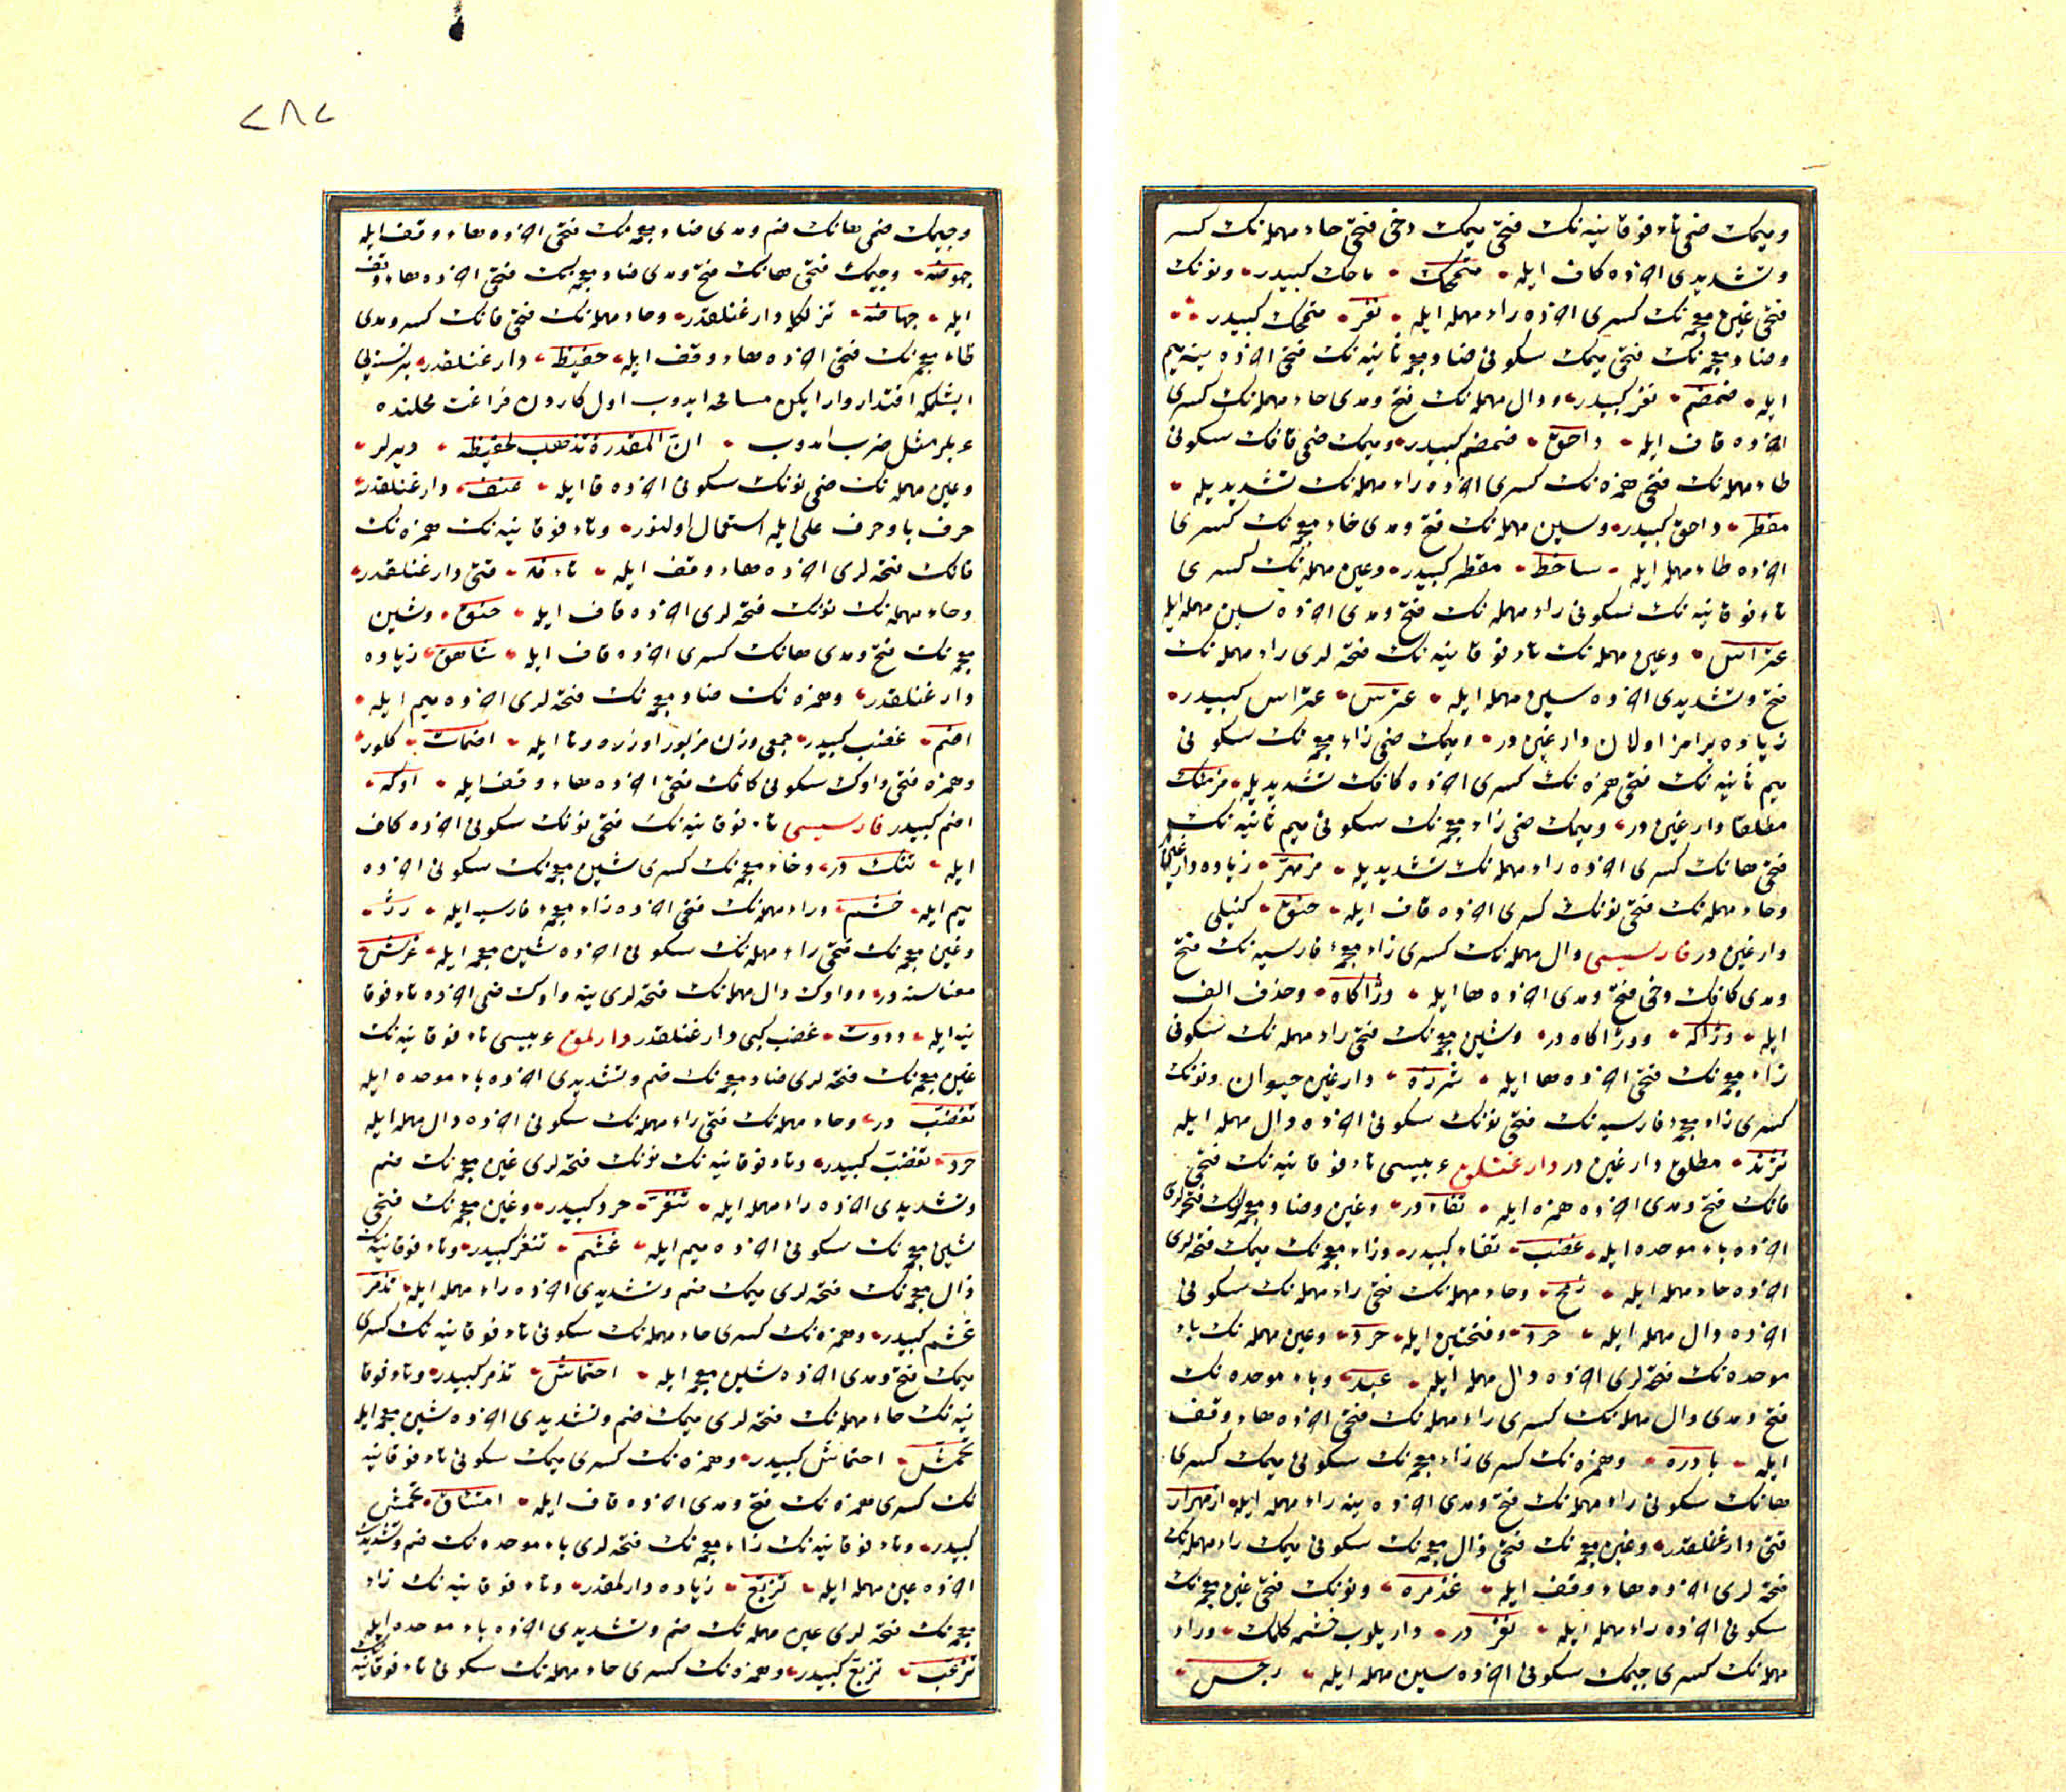 ومیمك ضمی تاء فوقانیه نك فتحی میمك دخی فتحی حاء مهمله نك كسر
وتشدیدی آخرده كاف ایله متمحّك ماحك كبیدر ونونك
فتحی غین معجمه نك كسری آخرده راء مهمله ایله نغر متمحّك كبیدر
وضاد معجمه نك فتحی میمك سكونی ضاد معجمه ثانیه نك فتحی آخرده ینه میم
ایله ضمضم نغر كبیدر ودال مهمله نك فتح ومدی حاء مهمله نك كسری
آخرده قاف ایله داحق ضمضم كبیدر ومیمك ضمی قافك سكونی
طاء مهمله نك فتحی همزه نك كسری آخرده راء مهمله نك تشدیدیله
مقطرّ داحق كبیدر وسین مهمله نك فتح ومدی خاء معجمه نك كسری
آخرده طاء مهمله ایله ساخط مقطرّ كبیدر وعین مهمله نك كسری
تاء فوقانیه نك سكونی راء مهمله نك فتح ومدی آخرده سین مهمله ایله
عتراس وعین مهمله نك تاء فوقانیه نك فتحه لری راء مهمله نك
فتح وتشدیدی آخرده سین مهمله ایله عترّس عتراس كبیدر
زیاده یرامز اولان دارغین در ومیمك ضمی زاء معجمه نك سكونی
میم ثانیه نك فتحی همزه نك كسری آخرده كافك تشدیدیله مزمئك
مطلقا دارغین در ومیمك ضمی زاء معجمه نك سكونی میم ثانیه نك
فتحی هانك كسری آخرده راء مهمله نك تشدیدیله مزمهرّ زیاده
وحاء مهمله نك فتحی نونك كسری آخرده قاف ایله حنق كینلی
دارغین در فارسیسی دال مهمله نك كسری زاء معجمهٔ فارسیه نك فتح
ومدی كافك دخی فتح ومدی آخرده ها ایله دژاكاه وحذف الف
ایله دژاكه ودژاكاه در وشین معجمه نك فتحی راء مهمله نك سكونی
زاء معجمه نك فتحی آخرده ها ایله شرزه دارغین حیوان ونونك
كسری زاء معجمهٔ فارسیه نك فتحی نونك سكونی آخرده دال مهمله ایله
نژند مطلق دارغین در دارغنلق عربیسی تاء فوقانیه نك فتحی
فانك فتح ومدی آخرده همزه ایله تفاء در وغین وضاد معجمه لرك فتحه لری
آخرده باء موحده ایله غضب تفاء كبیدر وزاء معجمه نك میمك فتحه لری
آخرده حاء مهمله ایله زمح وحاء مهمله نك فتحی راء مهمله نك سكونی
آخرده دال مهمله ایله حرد وفتحتین ایله حرد وعین مهمله نك باء
موحده نك فتحه لری آخرده دال مهمله ایله عبد وباء موحده نك
فتح ومدی دال مهمله نك كسری راء مهمله نك فتحی آخرده هاء وقف
ایله بادره وهمزه نك كسری زاء معجمه نك سكونی میمك كسری
هانك سكونی راء مهمله نك فتح ومدی آخرده ینه راء مهمله ایله ازمهرار
فتی دارغنلقدر وغین معجمه نك فتحی ذال معجمه نك سكونی میمك راء مهمله نك
فتحه لری آخرده هاء وقف ایله غذمره ونونك فتحی غین معجمه نك
سكونی آخرده راء مهمله ایله نغر در داریلوب خشمه كلمك وراء
مهمله نك كسری جیمك سكونی آخرده سین مهمله ایله رجس
٢٨٢
وجیمك ضمی هانك ضم ومدی ضاد معجمه نك فتحی آخرده هاء وقف ایله
جهوضه وجیمك فتحی هانك فتح ومدی ضاد معجمه نك فتحی آخرده هاء وقف
ایله جهاضه تزلكله دارغنلقدر وحاء مهمله نك فتحی فانك كسر ومدی
ظاء معجمه نك فتحی آخرده هاء وقف ایله حفیظه دارغنلقدر
ایشلمكه اقتدار وار ایكن مسامحه ایدوب اول كاردن فراغت محلنده
عربلر مثل ضرب ایدوب انّ المقدرة تذهب الحفیظه دیرلر
وعین مهمله نك ضمی نونك سكونی آخرده فا ایله عنف دارغنلقدر
حرف با وحرف علی ایله استعمال اولنور وتاء فوقانیه نك همزه نك
فانك فتحه لری آخرده هاء وقف ایله تاءفه فتی دارغنلقدر
وحاء مهمله نك نونك فتحه لری آخرده قاف ایله حنق وشین
معجمه نك فتح ومدی هانك كسری آخرده قاف ایله شاهق زیاده
دارغنلقدر وهمزه نك ضاد معجمه نك فتحه لری آخرده میم ایله
اضم غضب كبیدر جمعی وزن مزبور اوزره وتا ایله اضمات كلور
وهمزه فتحی واوك سكونی كافك فتحی آخرده هاء وقف ایله اوكه
اضم كبیدر فارسیسی تاء فوقانیه نك فتحی نونك سكونی آخرده كاف
ایله تنك در وخاء معجمه نك كسری شین معجمه نك سكونی آخرده
میم ایله خشم وراء مهمله نك فتحی آخرده زاء معجمهٔ فارسیه ایله رژ
وغین معجمه نك فتحی راء مهمله نك سكونی آخرده شین معجمه ایله غرش
معناسنه در وواوك دال مهمله نك فتحه لری ینه واوك ضمی آخرده تاء فوقا
نیه ایله ودوت غضب كبی دارغنلقدر دارلمق عربیسی تاء فوقانیه نك
غین معجمه نك فتحه لری ضاد معجمه نك ضم وتشدیدی آخرده باء موحده ایله
تغضّب در وحاء مهمله نك فتحی راء مهمله نك سكونی آخرده دال مهمله ایله
حرد تغضّب كبیدر وتاء فوقانیه نك نونك فتحه لری غین معجمه نك ضم
وتشدیدی آخرده راء مهمله ایله تنغّر حرد كبیدر وغین معجمه نك فتحی
شین معجمه نك سكونی آخرده میم ایله غشم تنغّر كبیدر وتاء فوقانیه نك
ذال معجمه نك فتحه لری میمك ضم وتشدیدی آخرده راء مهمله ایله تذمّر
غشم كبیدر وهمزه نك كسری حاء مهمله نك سكونی تاء فوقانیه نك كسری
میمك فتح ومدی آخرده شین معجمه ایله احتماش تذمّر كبیدر وتاء فوقا
نیه نك حاء مهمله نك فتحه لری میمك ضم وتشدیدی آخرده شین معجمه ایله
تحمّش احتماش كبیدر وهمزه نك كسری میمك سكونی تاء فوقانیه
نك كسری همزه نك فتح ومدی آخرده قاف ایله امتئاق تحمّش
كبیدر وتاء فوقانیه نك زاء معجمه نك فتحه لری باء موحده نك ضم وتشدیدی
آخرده عین مهمله ایله تزبّع زیاده دارلمقدر وتاء فوقانیه نك زاء
معجمه نك فتحه لری عین مهمله نك ضم وتشدیدی آخرده باء موحده ایله
تزعّب تزبّع كبیدر وهمزه نك كسری حاء مهمله نك سكونی تاء فوقانیه نك